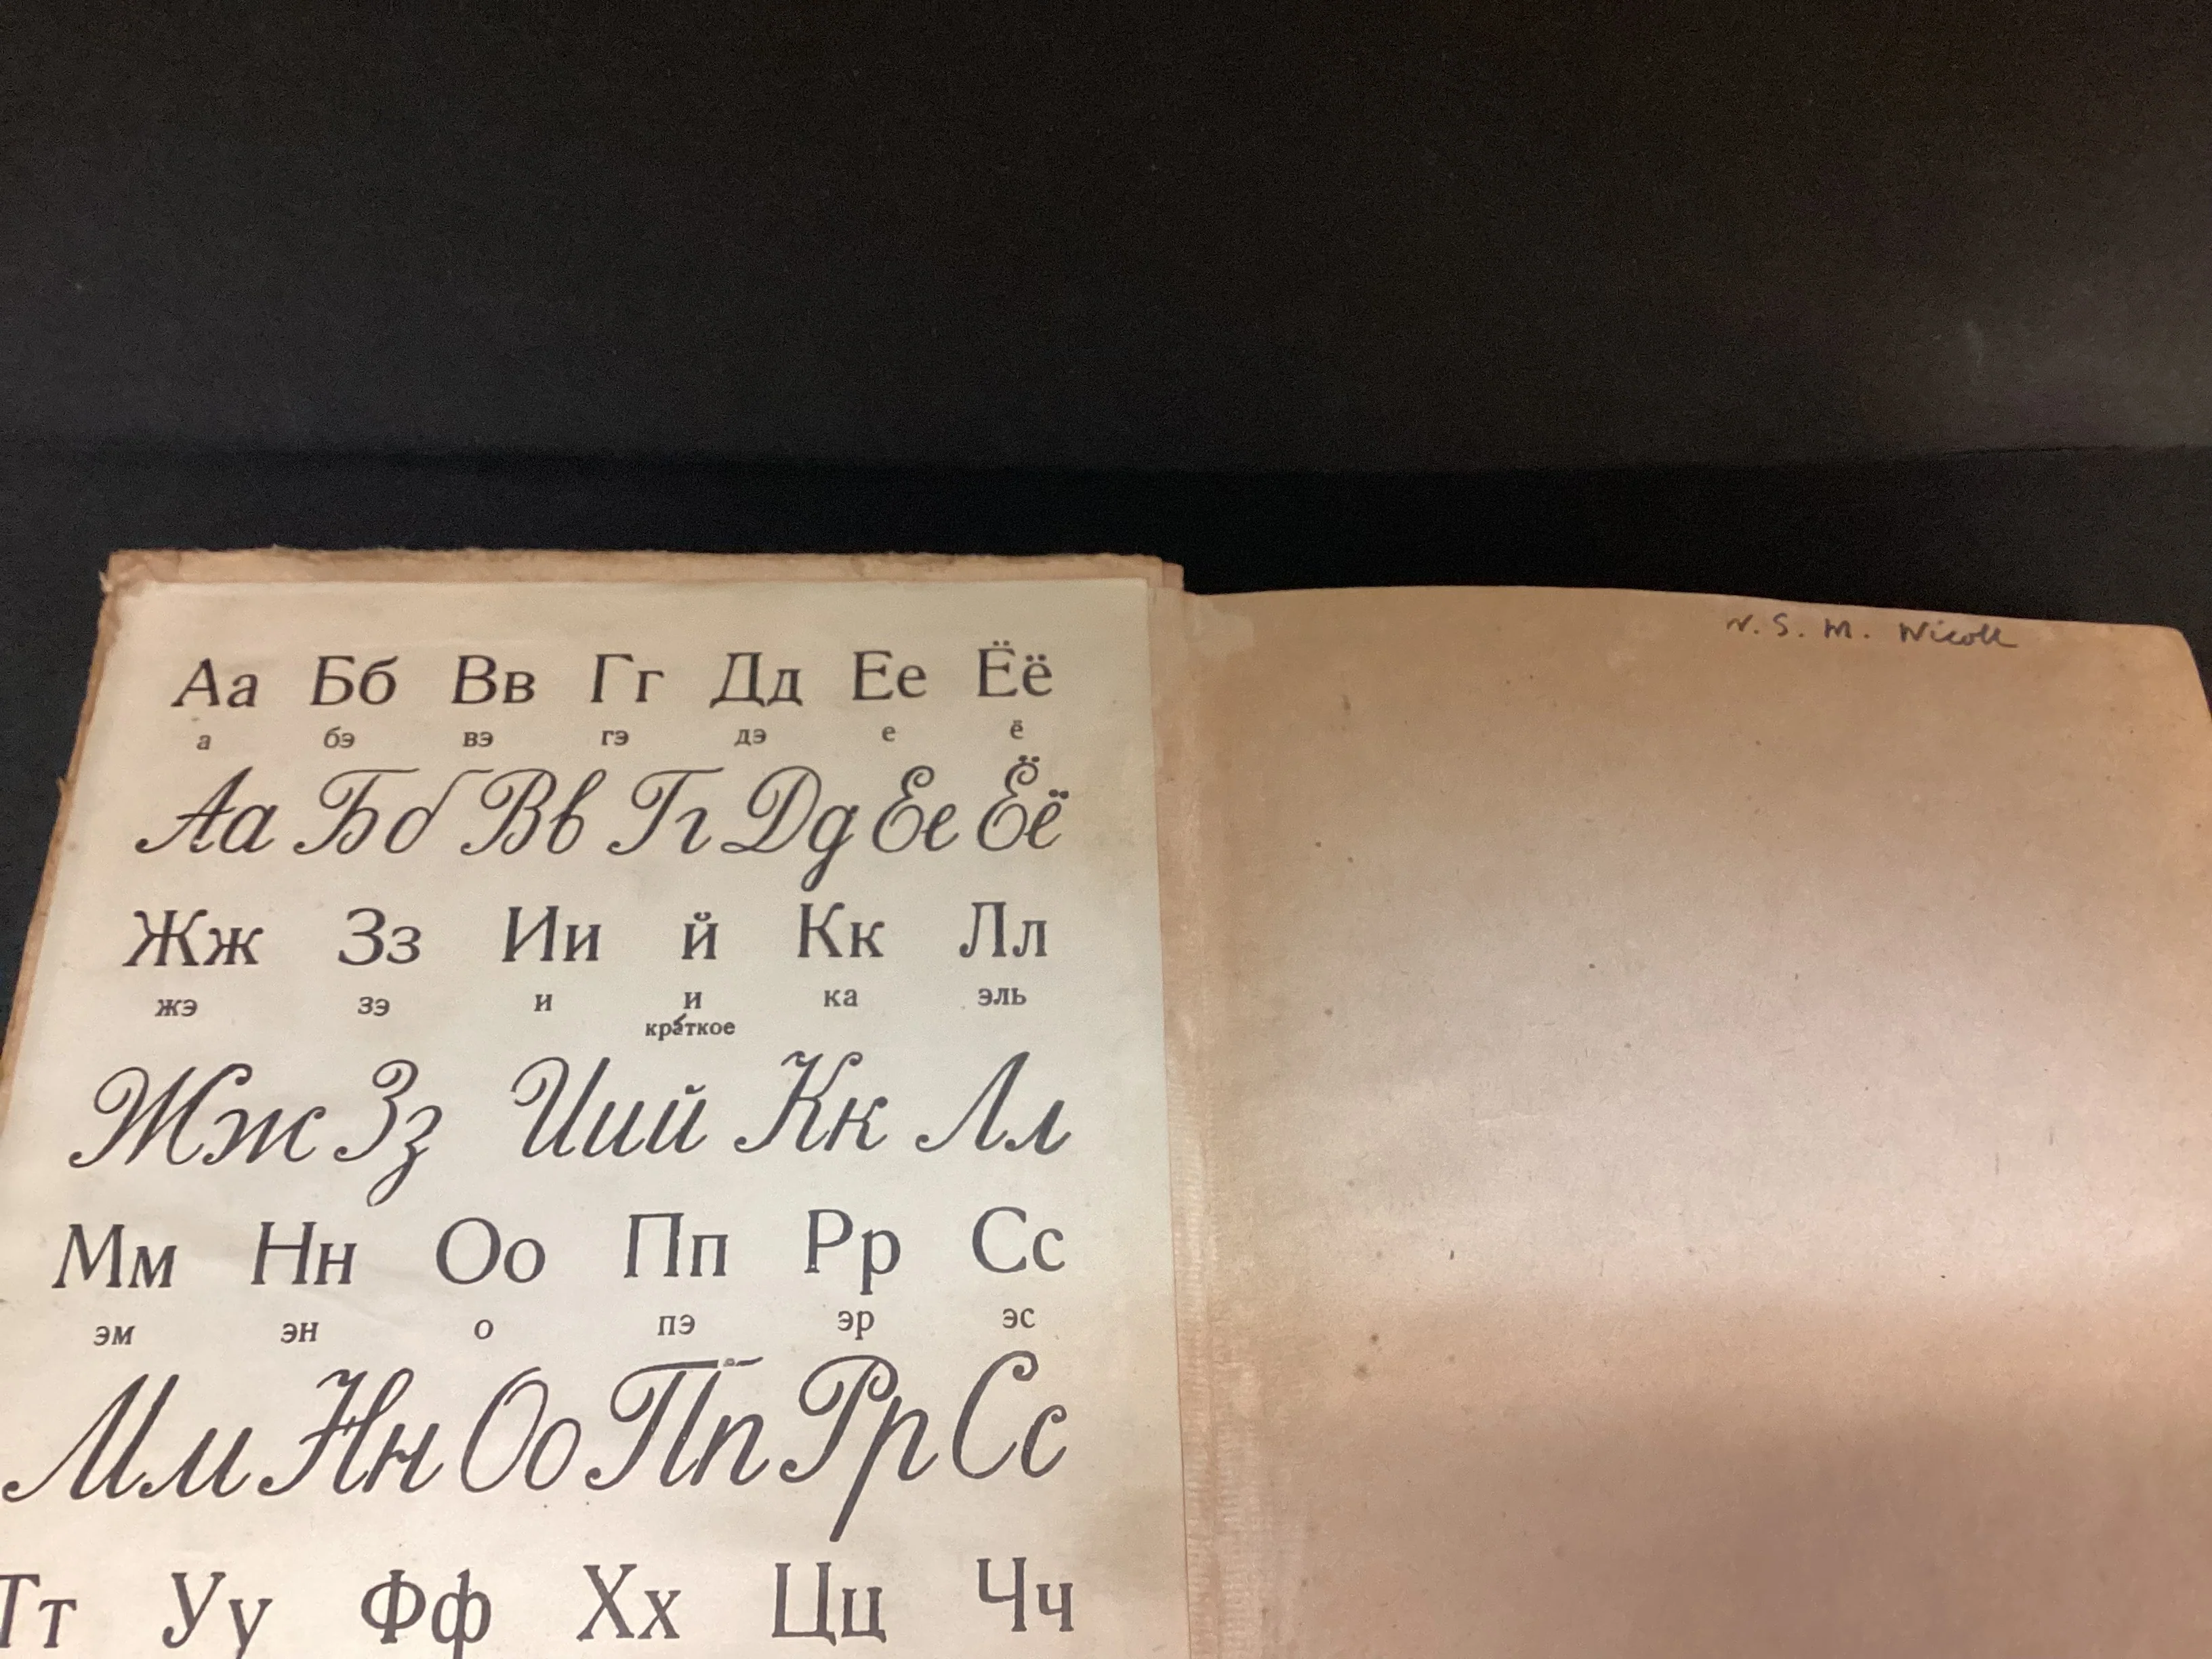 Аа Бб Вв Гг Дд Ее Ёё
а бэ вэ гэ дэ е ё
Аа Бб Вв Гг Дд Ее Ёё
Жж Зз Ии й Кк Лл
жэ зэ и и ка эль
кра́ткое
Жж Зз Иий Кк Лл
Мм Нн Оо Пп Рр Сс
эм эн о пэ эр эс
Мм Нн Оо Пп Рр Сс
Тт Уу Фф Хх Цц Чч
N. S. M. Nicoll